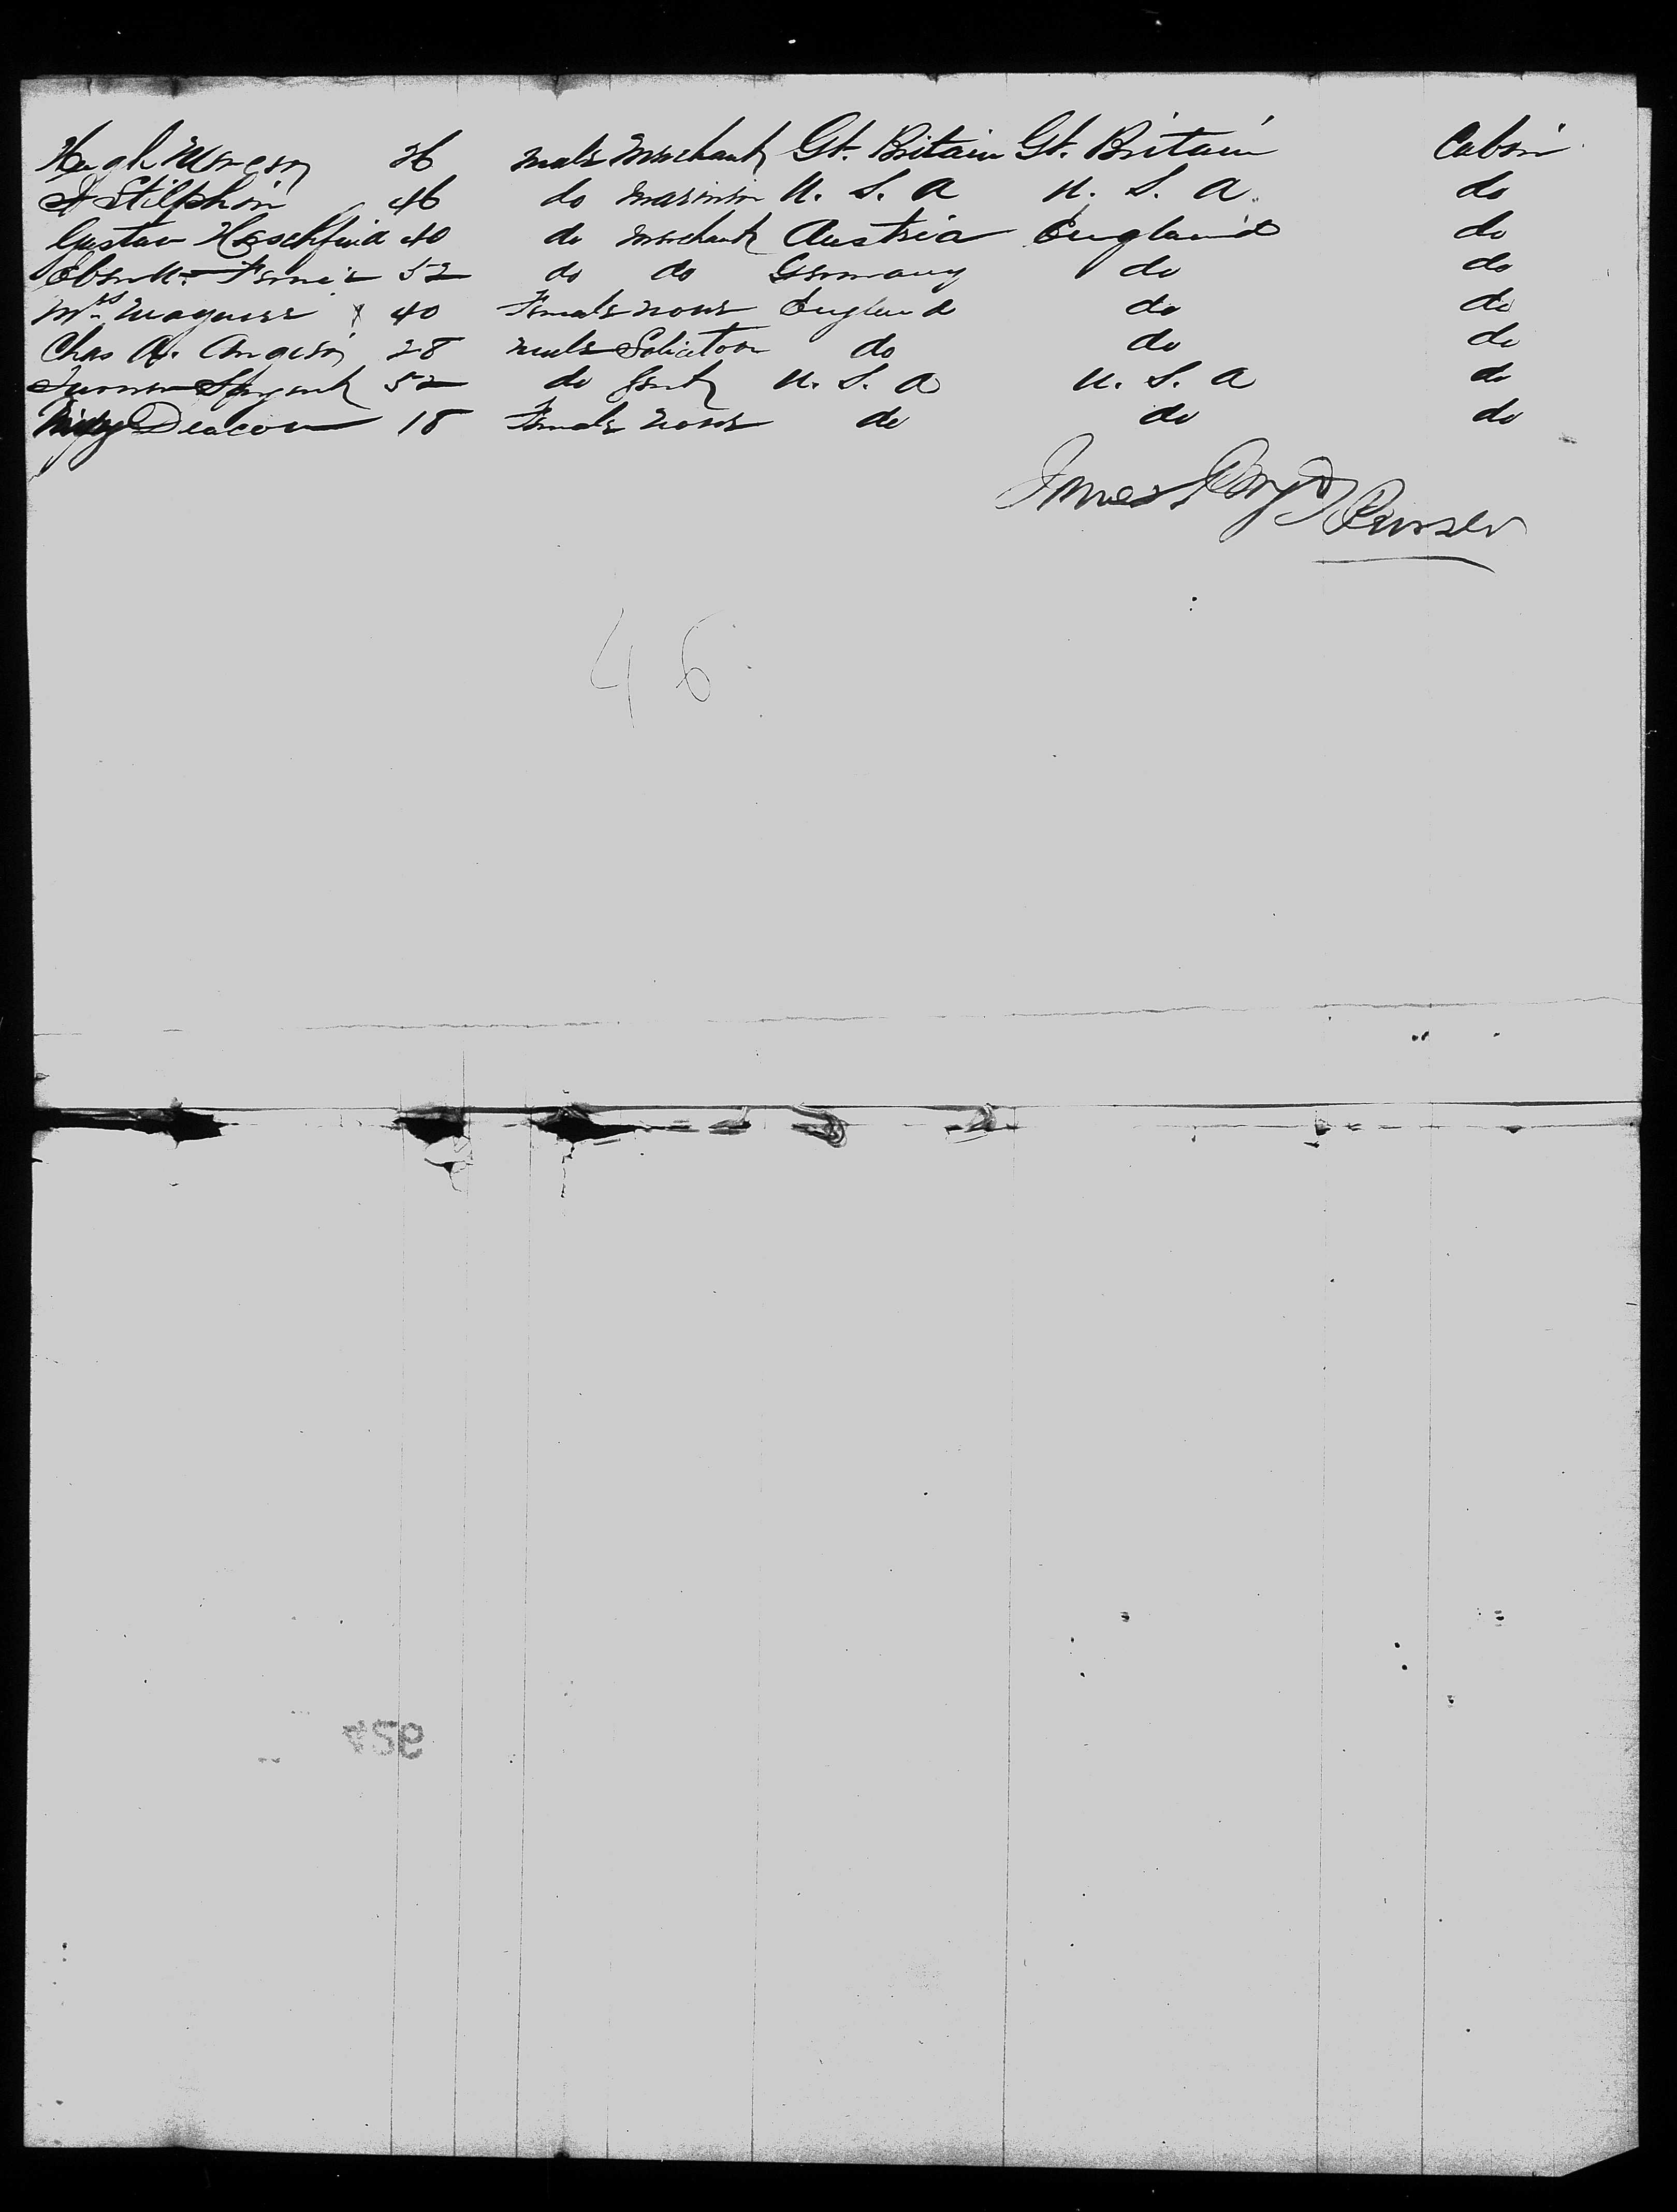 Hugh 26 male Merchant Gt. Britain Gt. Britain Cabin
Stilphin 46 do mariner U. S. A U. S. A. do
Gustav 40 do merchant Austria England do
52 do do Germany do do
Mrs Maguire x 40 Female none England do do
Chas A. 28 male Solicitor do do do
Turner Sargent 52 do Gent U. S. A U. S. A do
Deacon 18 Female none do do do
James Purser
46